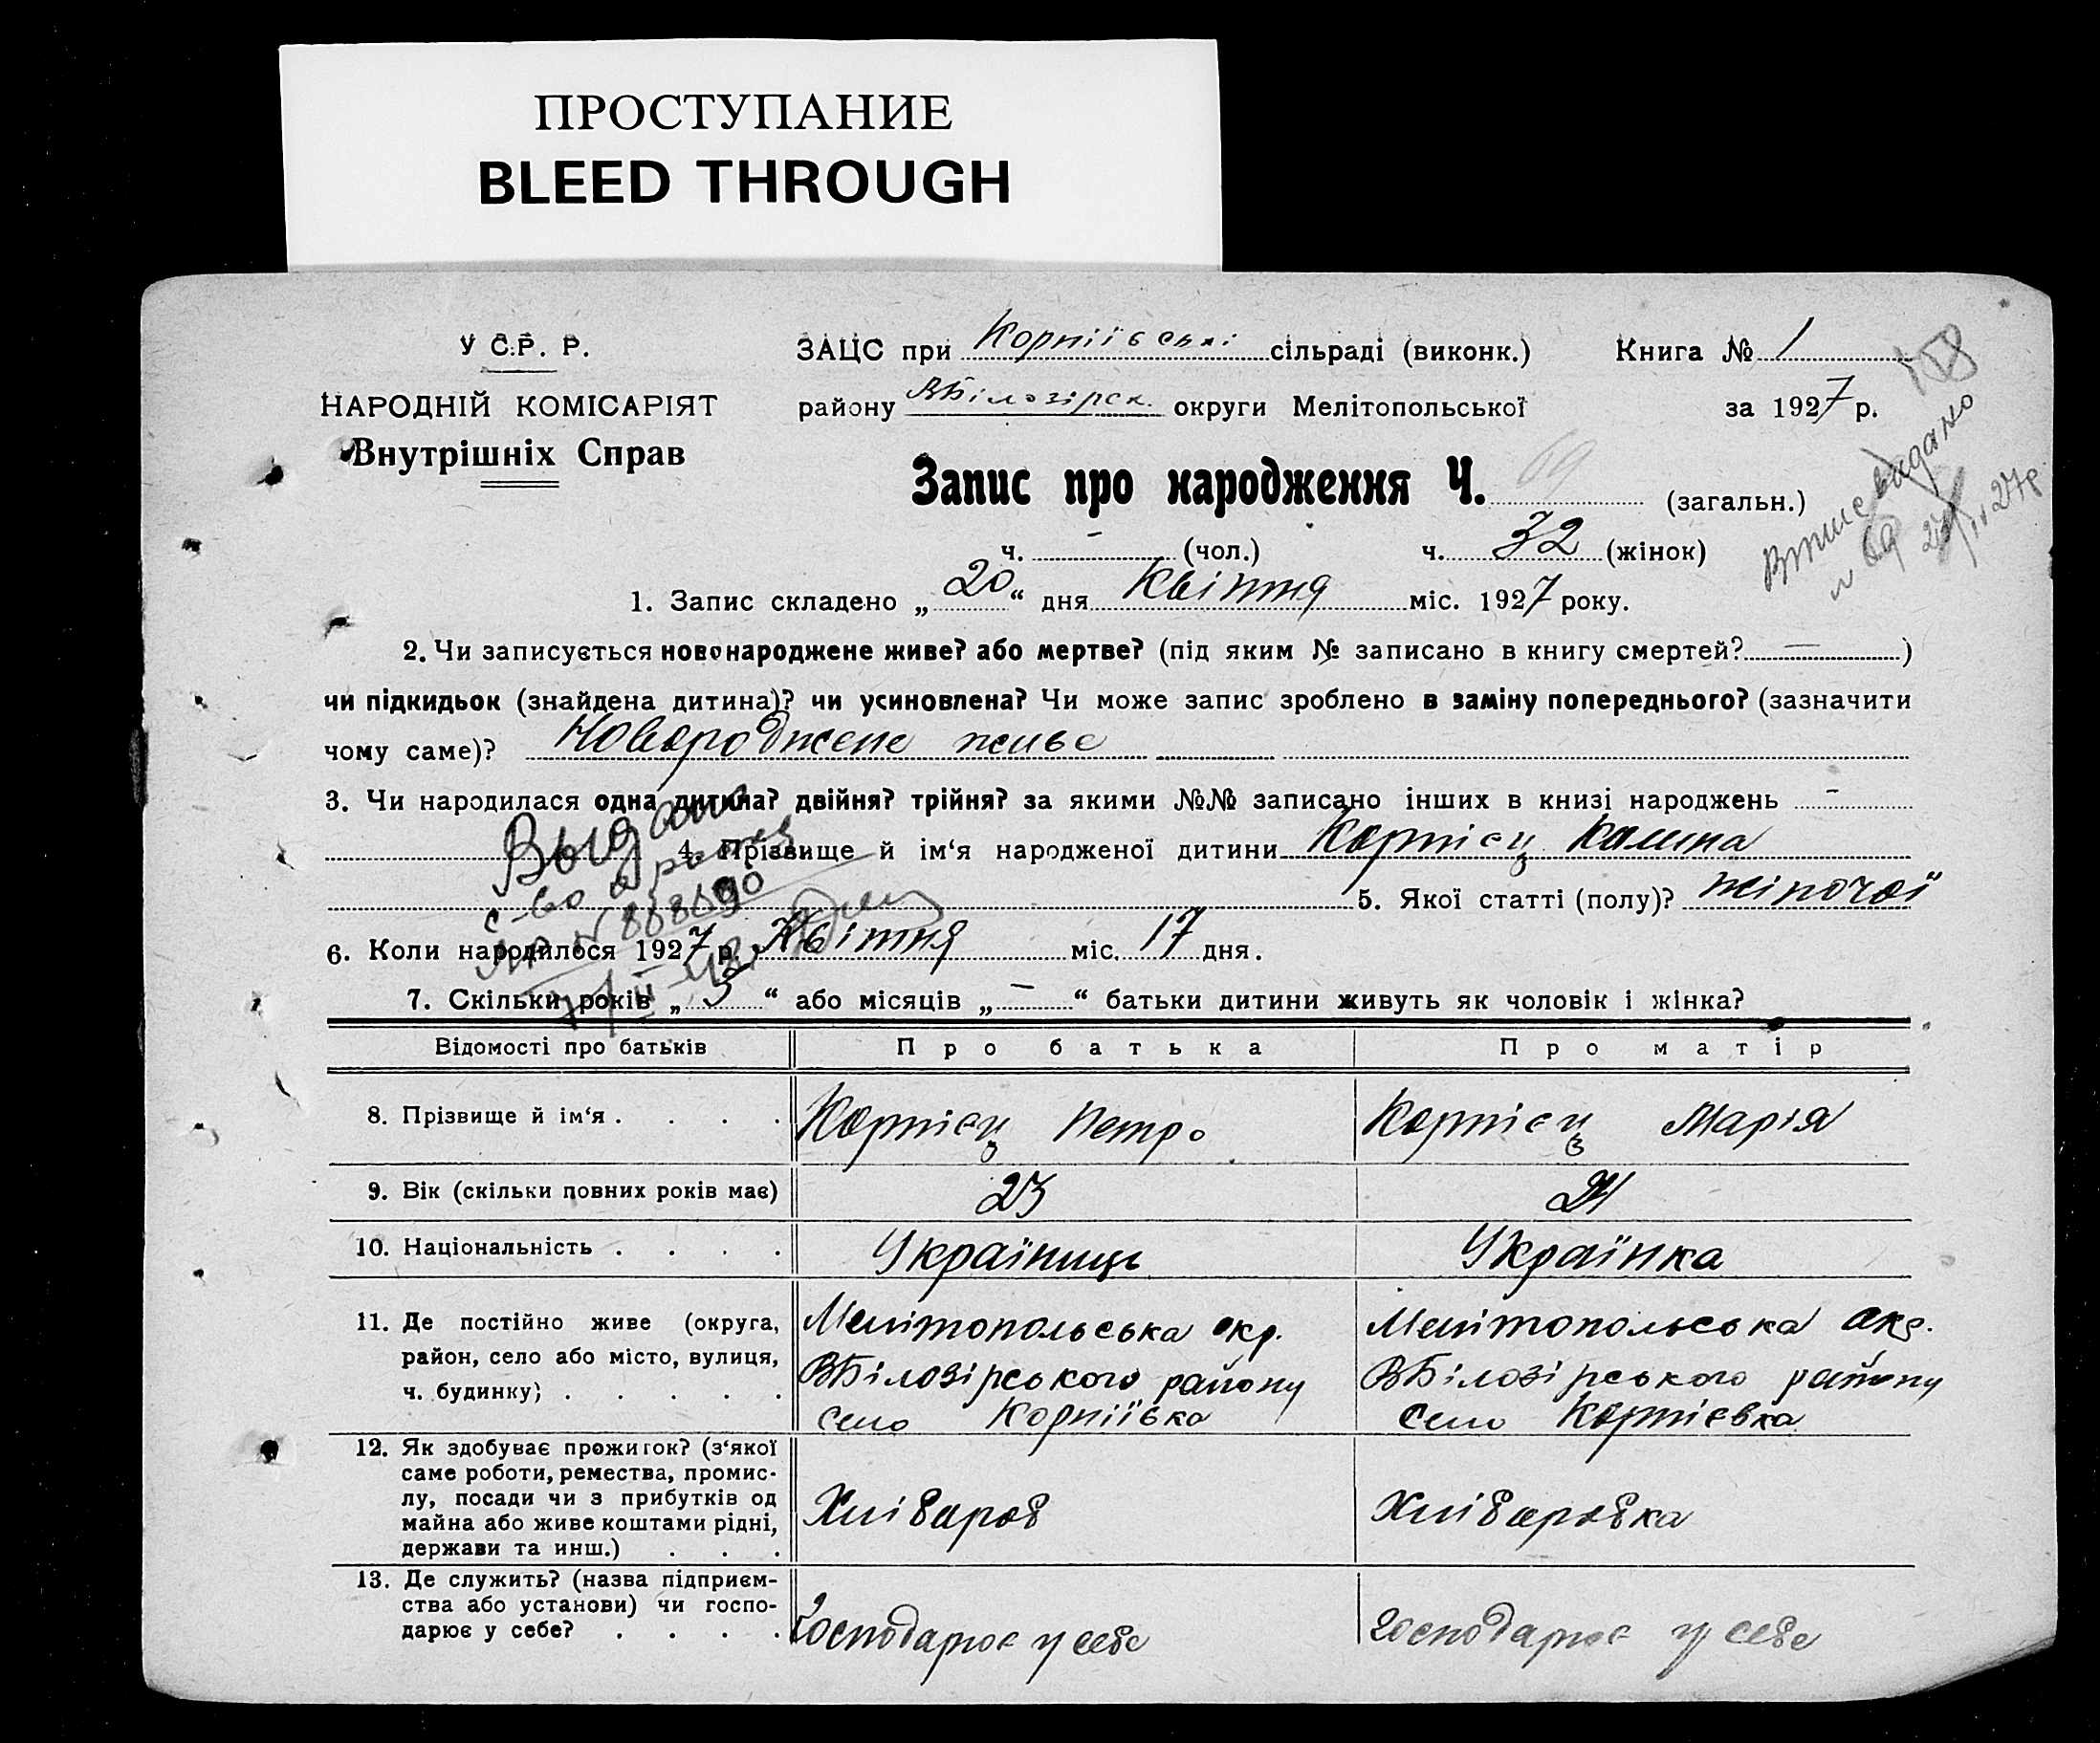 ПРОСТУПАНИЕ
BLEED THROUGH
У С.Р. Р.
НАРОДНІЙ КОМІСАРІЯТ
Внутрішніх Справ
ЗАЦС при Корніївські сільраді (виконк.) Книга № 1
району ВБілозірск. округи Мелітопольської за 1927 р.
Запис про народження Ч. 69 (загальн.)
ч. - (чол.) ч. 32 (жінок)
Втпис видано
1. Запис складено „ 20 “ дня Квітня міс. 1927 року.
2. Чи записується новонароджене живе? або мертве? (під яким № записано в книгу смертей? — )
чи підкидьок (знайдена дитина)? чи усиновлена? Чи може запис зроблено в заміну попереднього? (зазначити
чому саме)? Новороджене живе
3. Чи народилася одна дитина? двійня? трійня? за якими №№ записано інших в книзі народжень -
4. Прізвище й ім‘я народженої дитини Корнієц
5. Якої статті (полу)? жіночої
Выдано
6. Коли народилося 1927 р. Квітня міс. 17 дня.
7. Скільки років „ 5 “ або місяців „ — “ батьки дитини живуть як чоловік і жінка?
Відомості про батьків Про батька Про матір
8. Прізвище й ім‘я . . . . Корнієц Петро Корнієц Марія
9. Вік (скільки повних років має) 23 21
10. Національність . . . . Україниць Українка
11. Де постійно живе (округа,
район, село або місто, вулиця,
ч. будинку) . . . . .
Мелітопольська окр.
ВБілозірського району
село Корніївка
Мелітопольська окр.
ВБілозірського району
село Корнієвка
12. Як здобуває прожиток? (з‘якої
саме роботи, ремества, промис-
лу, посади чи з прибутків од
майна або живе коштами рідні,
держави та инш.) . . .
Хлібароб
Хлібаробка
13. Де служить? (назва підприєм-
ства або установи) чи госпо-
дарює у себе? . . . .
Господарює у себе
Господарює у себе